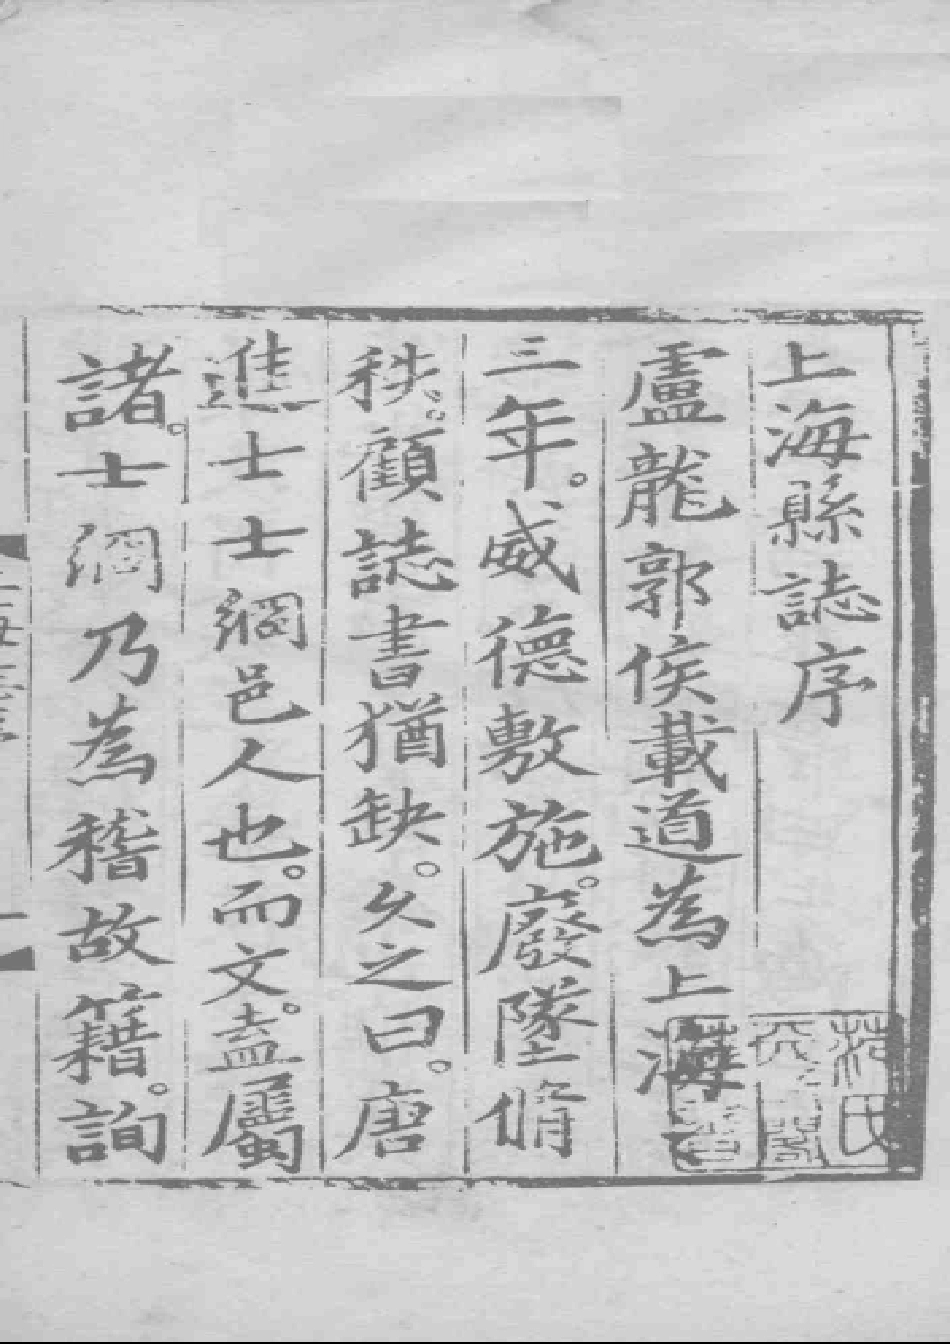 上海縣誌序
盧龍郭侯載道為上海
三年。威德敷施。廢墜脩
秩。顧誌書猶缺。久之曰。唐
進士士綱邑人也。而文。盍屬
諸。士綱乃為稽故籍。詢